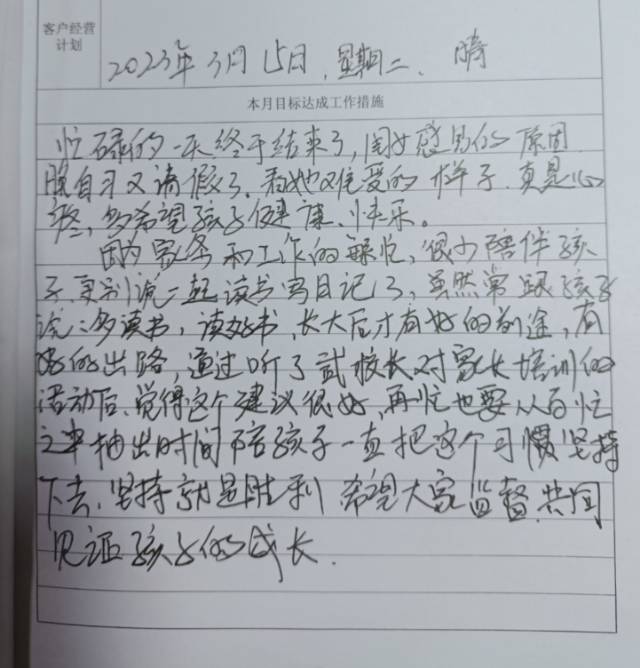 客户经营
计划
2023年3月15日，星期二、晴
本月目标达成工作措施
忙碌的一天终于结束了，闺女感冒的原因
晚自习又请假了。看她难受的样子，真是心
疼，多希望孩子健康、快乐。
因为家务和工作的繁忙，很少陪伴孩
子，更别说一起读书写日记了，虽然常跟孩子
说：多读书，读好书，长大后才有好的前途，有
好的出路，通过听了武校长对家长培训的
活动后，觉得这个建议很好，再忙也要从百忙
之中抽出时间陪孩子一直把这个习惯坚持
下去，坚持就是胜利 希望大家监督，共同
见证孩子的成长.